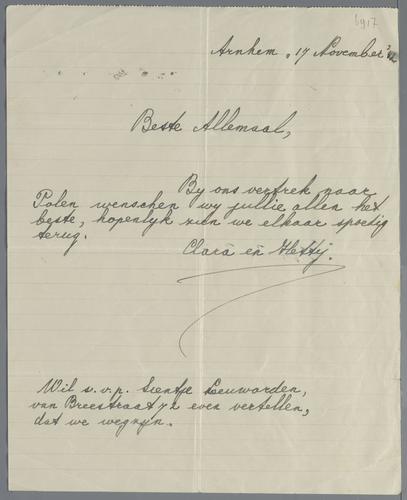 6917
Arnhem, 17 November '42
Beste Allemaal,
By ons vertrek naar
Polen wenschen wy jullie allen het
beste, hopenlyk zien we elkaar spoedig
terug.
Clara en Hetty.
Wil s.v.p. Sientje Leuwarden,
van Breestraat 72 even vertellen,
dat we wegzyn.